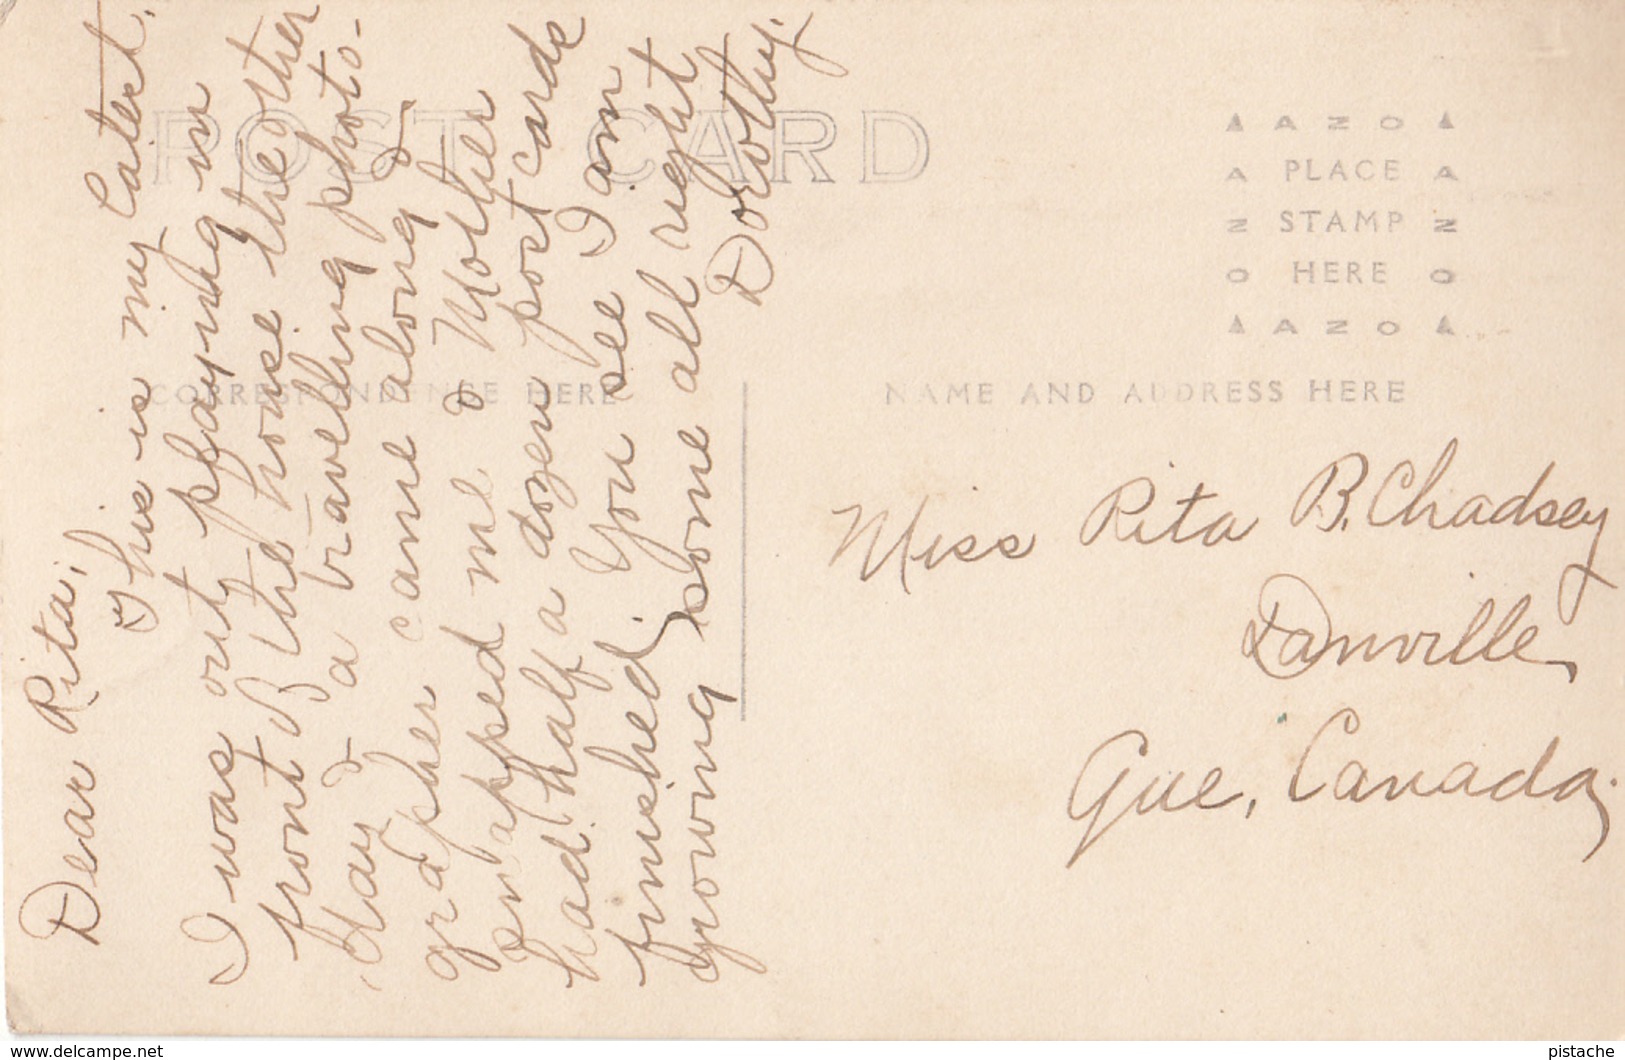 POST CARD
CORRESPONDENCE HERE
NAME AND ADDRESS HERE
AZO
PLACE
STAMP
HERE
AZO
Dear Rita,
This is my latest.
I was out playing in
front B the house the other
day & a travelling photo-
grapher came along &
snapped me & Mother
had half a dozen post cards
finished. You see I am
growing some all right
Dorothy.
Miss Rita B. Chadsey
Danville,
Que, Canada,
www.delcampe.net
pistache